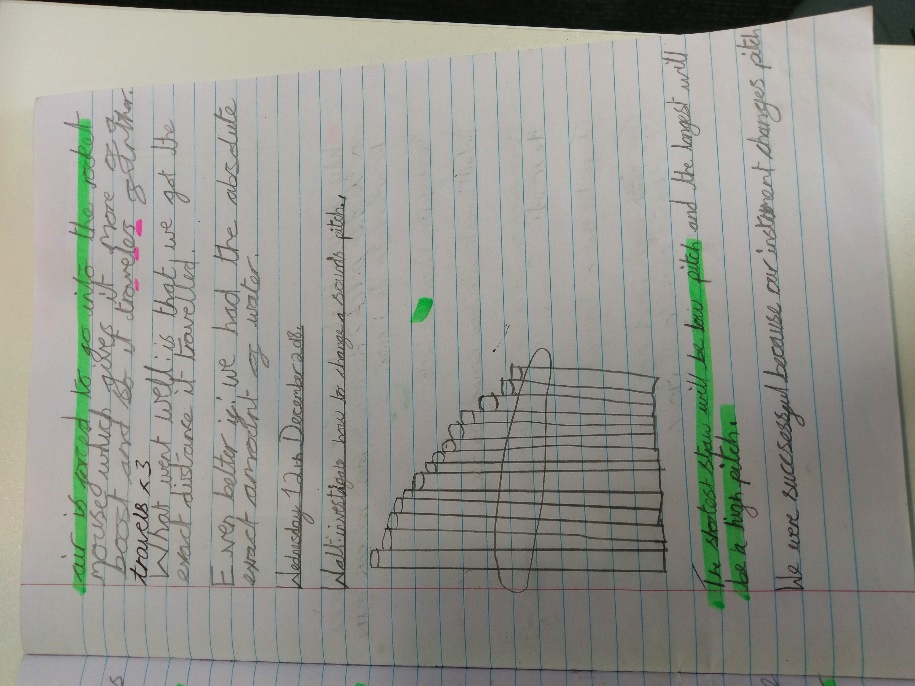 air is forced to go into the rocket
which gives it more of a
boost and so it traveles further.
travels x 3
What went well: is that we got the
exact distance it travelled.
Even better if: we had the absolute
exact amount of water.
Wednesday 12th December
Walt: investigate how to change a sounds pitch.
The shortest straw will be low pitch and the longest will
be a high pitch.
We were sucsessful because our instrument changes pitch